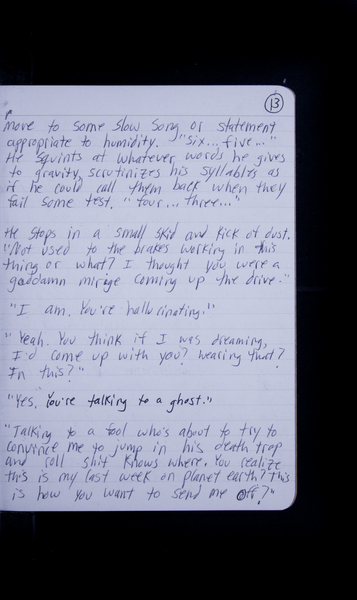 13
move to some slow song or statement
appropriate to humidity. "Six... five..."
He squints at whatever words he gives
to gravity, scrutinizes his syllables as
if he could call them back when they
fail some test. "four... three..."
He stops in a small skid and kick of dust.
"Not used to the brakes working in this
thing or what? I thought you were a
goddamn mirage coming up the drive."
"I am. You're hallucinating."
"Yeah. You think if I was dreaming,
I'd come up with you? Wearing that?
In this?"
"Yes. You're talking to a ghost."
"Talking to a fool who's about to try to
convince me to jump in his death trap
and roll shit knows where. You realize
this is my last week on planet earth? This
is how you want to send me off?"